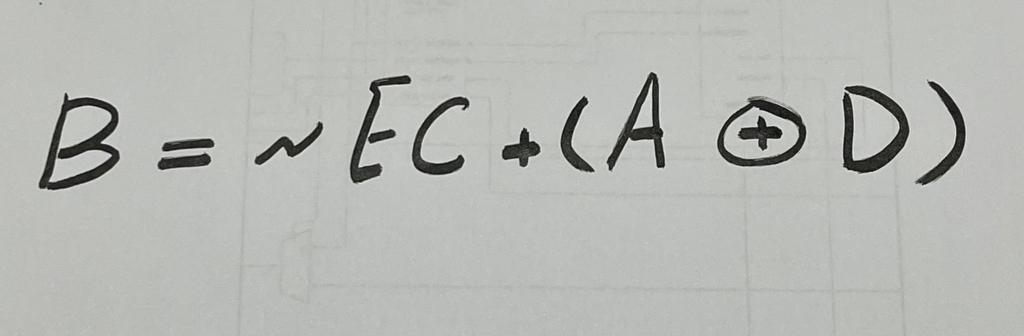 B = ~ EC + (A ⊕ D)